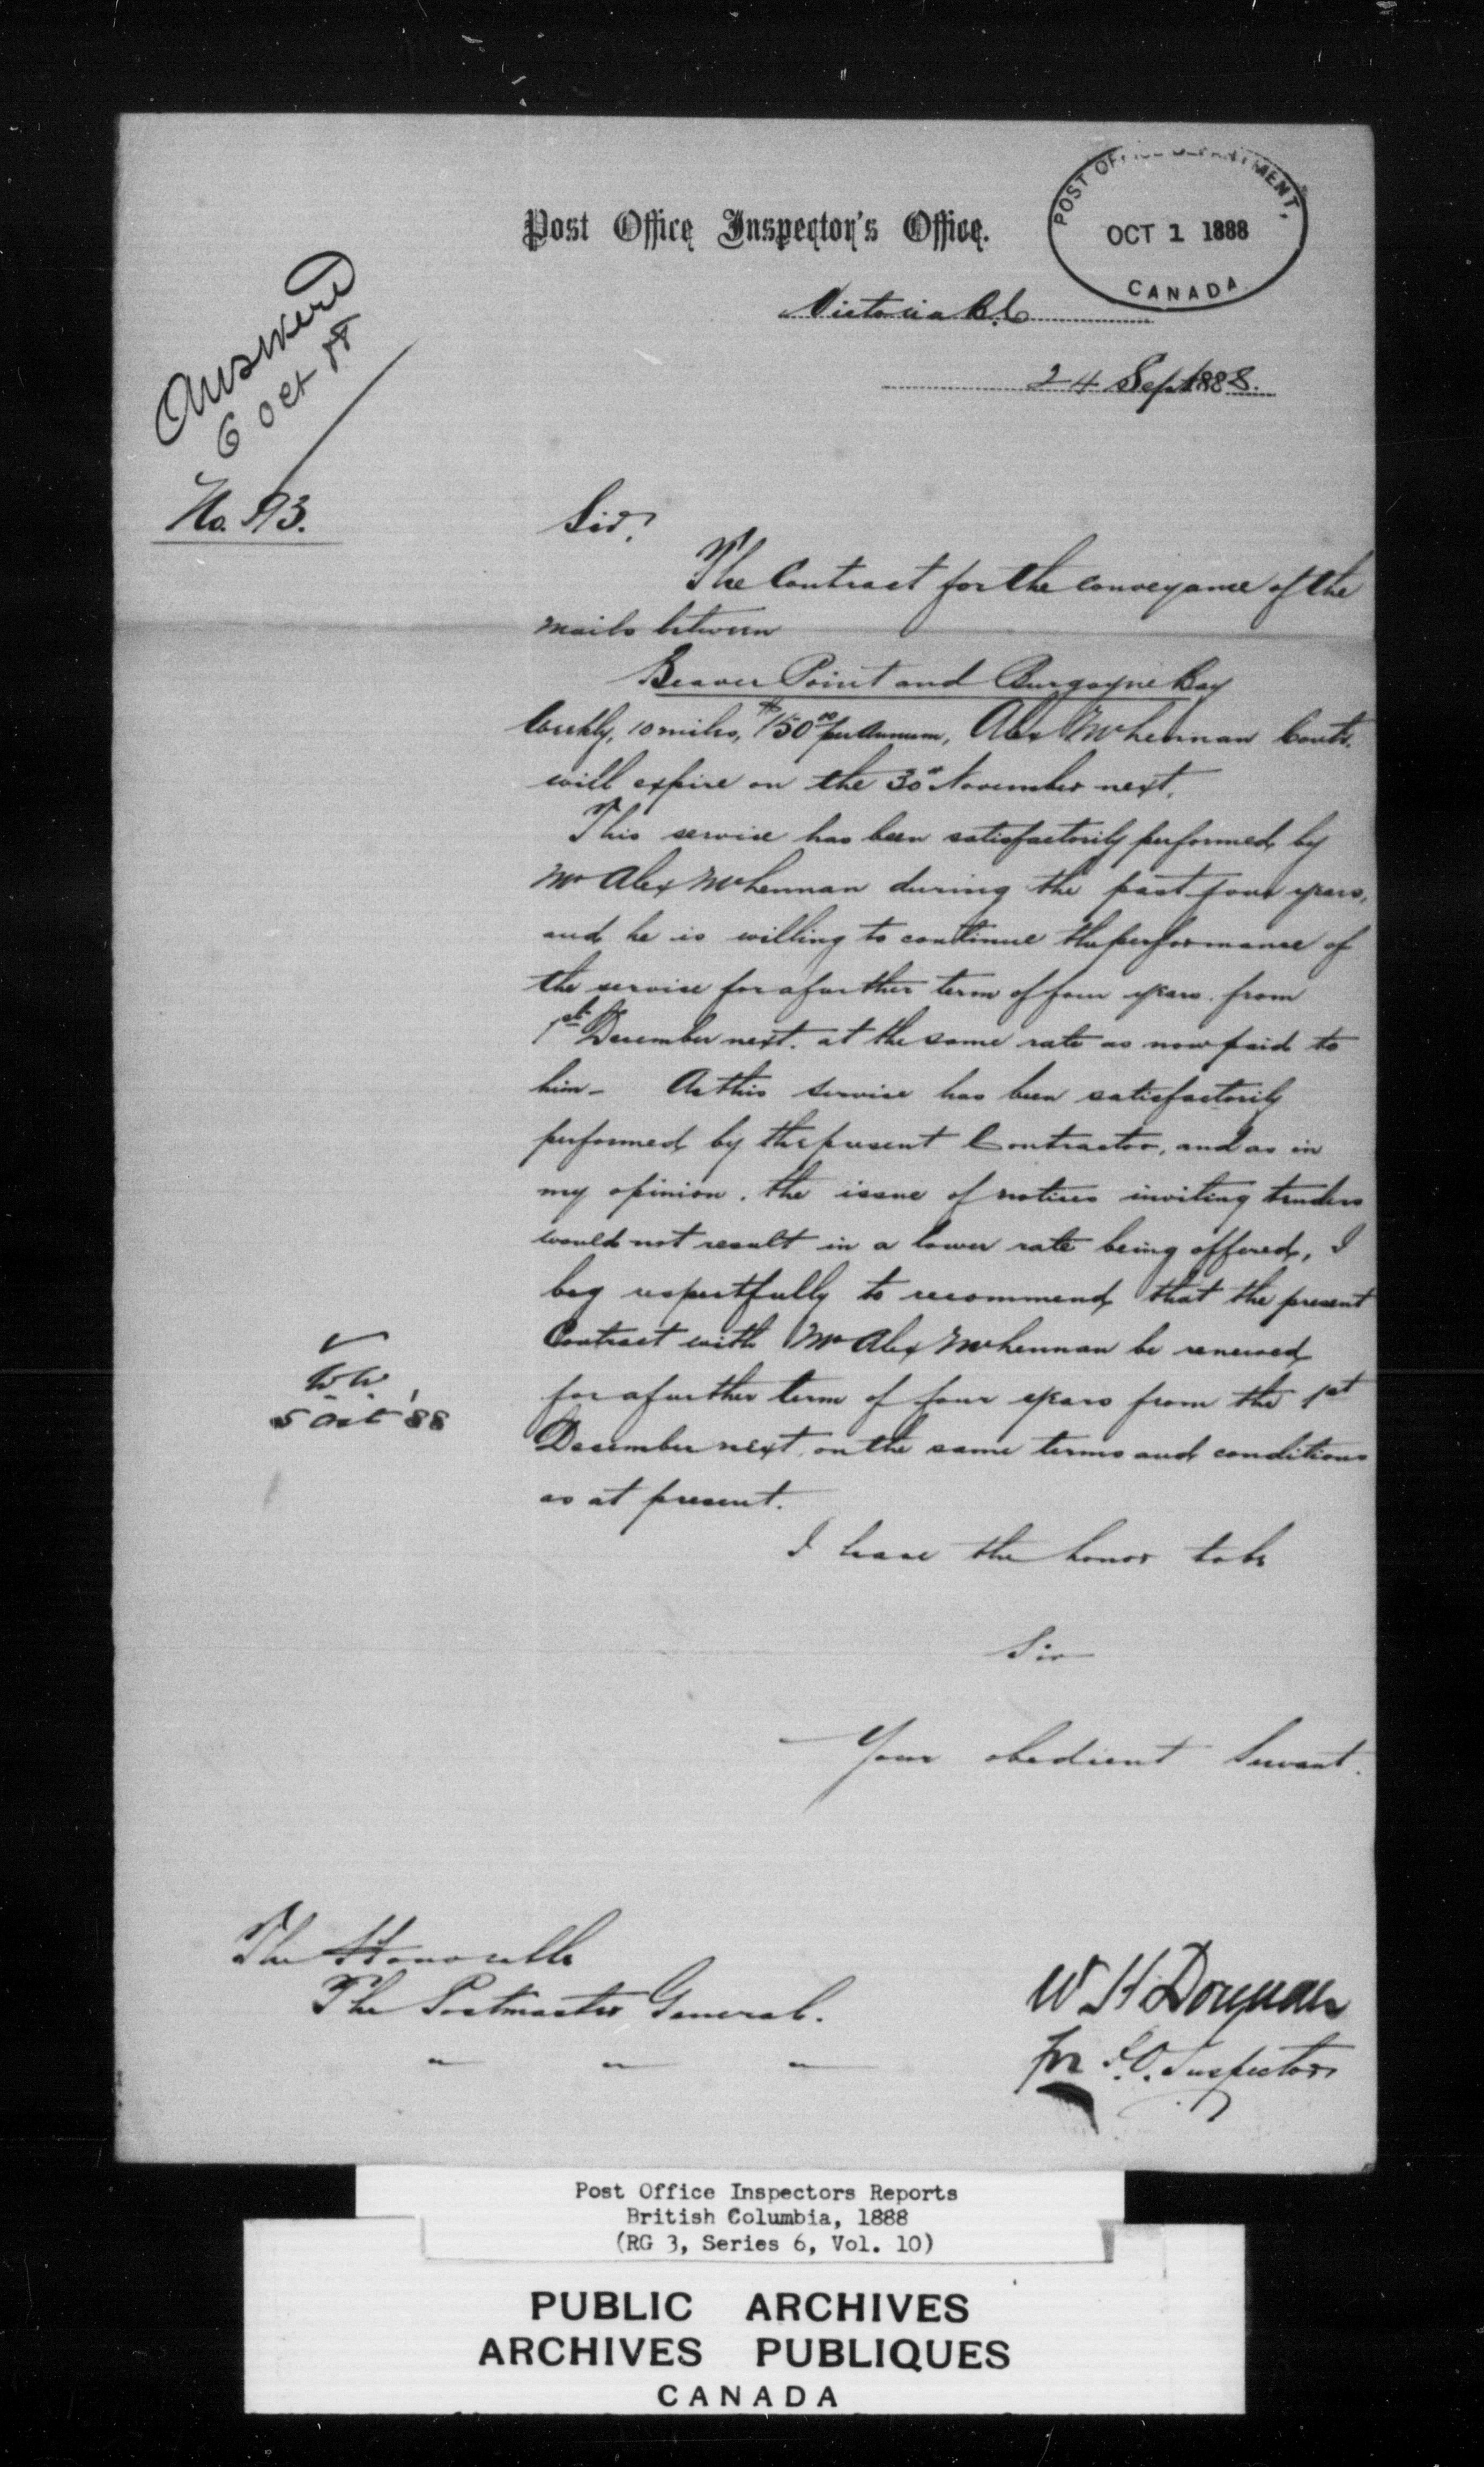 Post Office Inspector's Office.
POST OFFICE DEPARTMENT,
OCT 1 1888
CANADA
Victoria B.C
24 Sept 1888.
Answered
6 Oct 88
No. 593.
Sir,
The Contract for the conveyance of the
mails between
Beaver Point and Burgoyne Bay
Weekly, 10 miles, $150 00 per Annum, Alex McLennan Contr.
will expire on the 30th November next.
This service has been satisfactorily performed by
Mr Alex McLennan during the past four years,
and he is willing to continue the performance of
the service for a further term of four years from
1st December next. at the same rate as now paid to
him - As this service has been satisfactorily
performed by the present Contractor, and as in
my opinion. the issue of notices inviting tenders
would not result in a lower rate being offered, I
beg respectfully to recommend that the present
Contract with Mr Alex McLennan be renewed
for a further term of four years from the 1st
December next, on the same terms and conditions
as at present.
5 Oct '88
I have the honor to be
Sir
Your obedient Servant.
The Honorable
The Postmaster General.
W H Dorman
for P.O. Inspector
Post Office Inspectors Reports
British Columbia, 1888
(RG 3, Series 6, Vol. 10)
PUBLIC ARCHIVES
ARCHIVES PUBLIQUES
CANADA